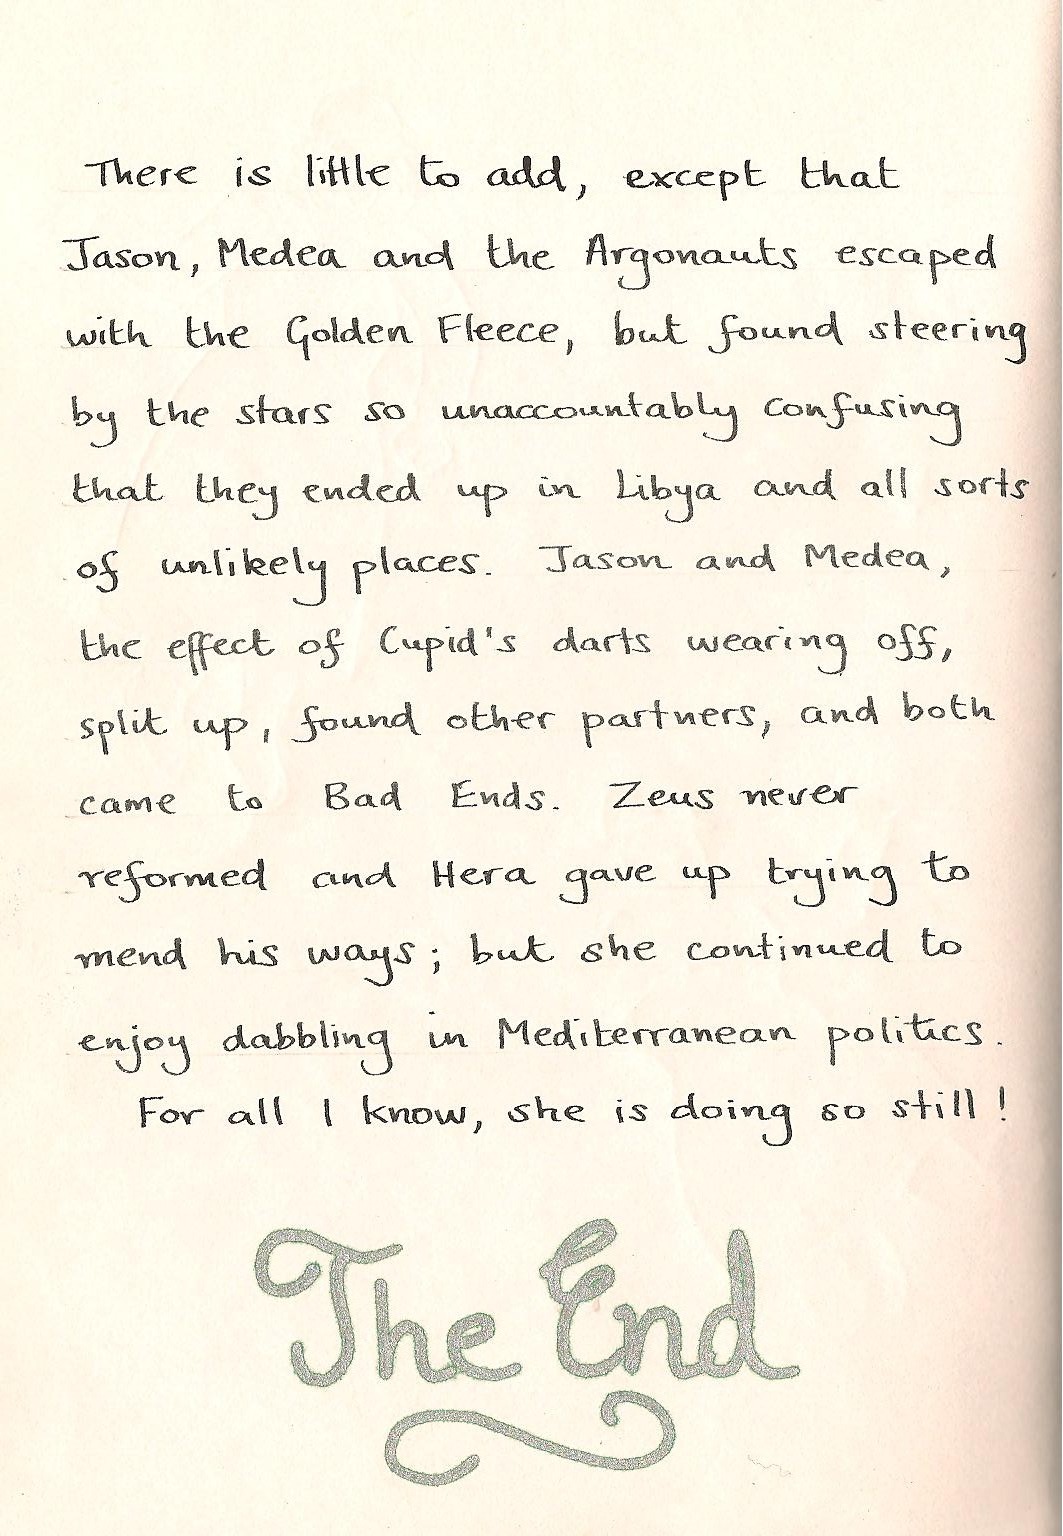 There is little to add, except that
Jason, Medea and the Argonauts escaped
with the Golden Fleece, but found steering
by the stars so unaccountably confusing
that they ended up in Libya and all sorts
of unlikely places. Jason and Medea,
the effect of Cupid's darts wearing off,
split up, found other partners, and both
came to Bad Ends. Zeus never
reformed and Hera gave up trying to
mend his ways; but she continued to
enjoy dabbling in Mediterranean politics.
For all I know, she is doing so still!
The End